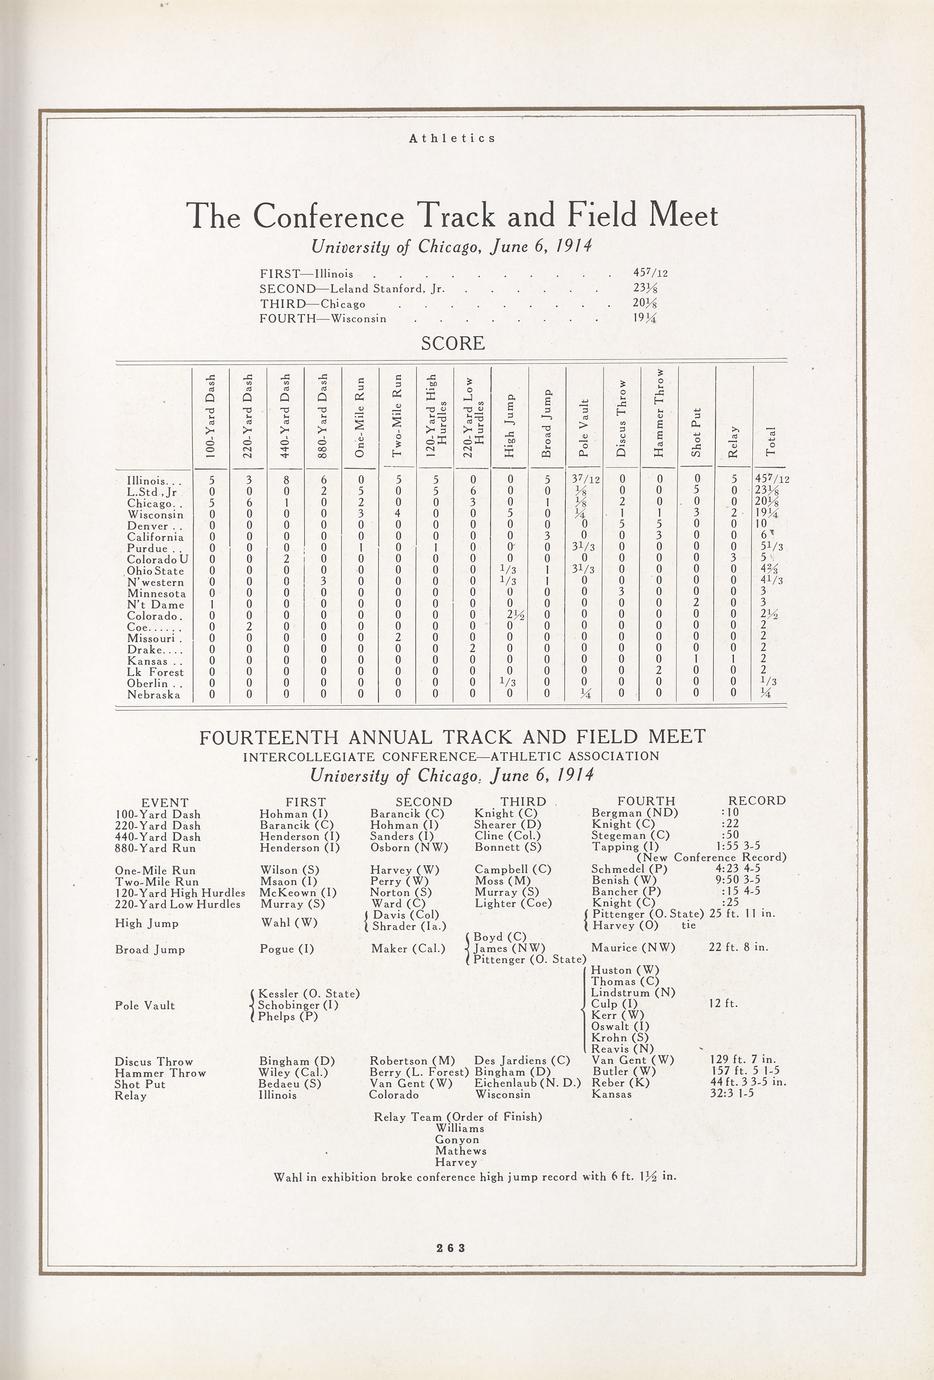 Athletics
The Conference Track and Field Meet
University of Chicago, June 6, 1914
FIRST—Illinois . . . . . . . . . . 457/12
SECOND—Leland Stanford, Jr. . . . . . . 23⅛
THIRD—Chicago . . . . . . . . . 20⅛
FOURTH—Wisconsin . . . . . . . . 19¼
SCORE
100-Yard Dash 220-Yard Dash 440-Yard Dash 880-Yard Dash One-Mile Run Two-Mile Run 120-Yard High Hurdles 220-Yard Low Hurdles High Jump Broad Jump Pole Vault Discus Throw Hammer Throw Shot Put Relay Total
Illinois. . . 5 3 8 6 0 5 5 0 0 5 37/12 0 0 0 5 457/12
L.Std ,Jr 0 0 0 2 5 0 5 6 0 0 ⅛ 0 0 5 0 23⅛
Chicago. . 5 6 1 0 2 0 0 3 0 1 ⅛ 2 0 0 0 20⅛
Wisconsin 0 0 0 0 3 4 0 0 5 0 ¼ 1 1 3 2 19¼
Denver . . 0 0 0 0 0 0 0 0 0 0 0 5 5 0 0 10
California 0 0 0 0 0 0 0 0 0 3 0 0 3 0 0 6
Purdue . . 0 0 0 0 1 0 1 0 0 0 31/3 0 0 0 0 51/3
Colorado U 0 0 2 0 0 0 0 0 0 0 0 0 0 0 3 5
Ohio State 0 0 0 0 0 0 0 0 1/3 1 31/3 0 0 0 0 4⅔
N'western 0 0 0 3 0 0 0 0 1/3 1 0 0 0 0 0 41/3
Minnesota 0 0 0 0 0 0 0 0 0 0 0 3 0 0 0 3
N't Dame 1 0 0 0 0 0 0 0 0 0 0 0 0 2 0 3
Colorado. 0 0 0 0 0 0 0 0 2½ 0 0 0 0 0 0 2½
Coe. . . . . . 0 2 0 0 0 0 0 0 0 0 0 0 0 0 0 2
Missouri . 0 0 0 0 0 2 0 0 0 0 0 0 0 0 0 2
Drake. . . . 0 0 0 0 0 0 0 2 0 0 0 0 0 0 0 2
Kansas . . 0 0 0 0 0 0 0 0 0 0 0 0 0 1 1 2
Lk Forest 0 0 0 0 0 0 0 0 0 0 0 0 2 0 0 2
Oberlin . . 0 0 0 0 0 0 0 0 1/3 0 0 0 0 0 0 1/3
Nebraska 0 0 0 0 0 0 0 0 0 0 ¼ 0 0 0 0 ¼
FOURTEENTH ANNUAL TRACK AND FIELD MEET
INTERCOLLEGIATE CONFERENCE—ATHLETIC ASSOCIATION
University of Chicago, June 6, 1914
EVENT FIRST SECOND THIRD FOURTH RECORD
100-Yard Dash Hohman (I) Barancik (C) Knight (C) Bergman (ND) :10
220-Yard Dash Barancik (C) Hohman (I) Shearer (D) Knight (C) :22
440-Yard Dash Henderson (I) Sanders (I) Cline (Col.) Stegeman (C) :50
880-Yard Run Henderson (I) Osborn (NW) Bonnett (S) Tapping (I) 1:55 3-5
(New Conference Record)
One-Mile Run Wilson (S) Harvey (W) Campbell (C) Schmedel (P) 4:23 4-5
Two-Mile Run Msaon (I) Perry (W) Moss (M) Benish (W) 9:50 3-5
120-Yard High Hurdles McKeown (I) Norton (S) Murray (S) Bancher (P) :15 4-5
220-Yard Low Hurdles Murray (S) Ward (C) Lighter (Coe) Knight (C) :25
High Jump Wahl (W) { Davis (Col) Shrader (Ia.) { Pittenger (O. State) 25 ft. 11 in.
Harvey (O) tie
Broad Jump Pogue (I) Maker (Cal.) { Boyd (C) James (NW) Pittenger (O. State) Maurice (NW) 22 ft. 8 in.
Pole Vault { Kessler (O. State) Schobinger (I) Phelps (P) { Huston (W)
Thomas (C)
Lindstrum (N)
Culp (I) 12 ft.
Kerr (W)
Oswalt (I)
Krohn (S)
Reavis (N)
Discus Throw Bingham (D) Robertson (M) Des Jardiens (C) Van Gent (W) 129 ft. 7 in.
Hammer Throw Wiley (Cal.) Berry (L. Forest) Bingham (D) Butler (W) 157 ft. 5 1-5
Shot Put Bedaeu (S) Van Gent (W) Eichenlaub (N. D.) Reber (K) 44 ft. 3 3-5 in.
Relay Illinois Colorado Wisconsin Kansas 32:3 1-5
Relay Team (Order of Finish)
Williams
Gonyon
Mathews
Harvey
Wahl in exhibition broke conference high jump record with 6 ft. 1½ in.
263